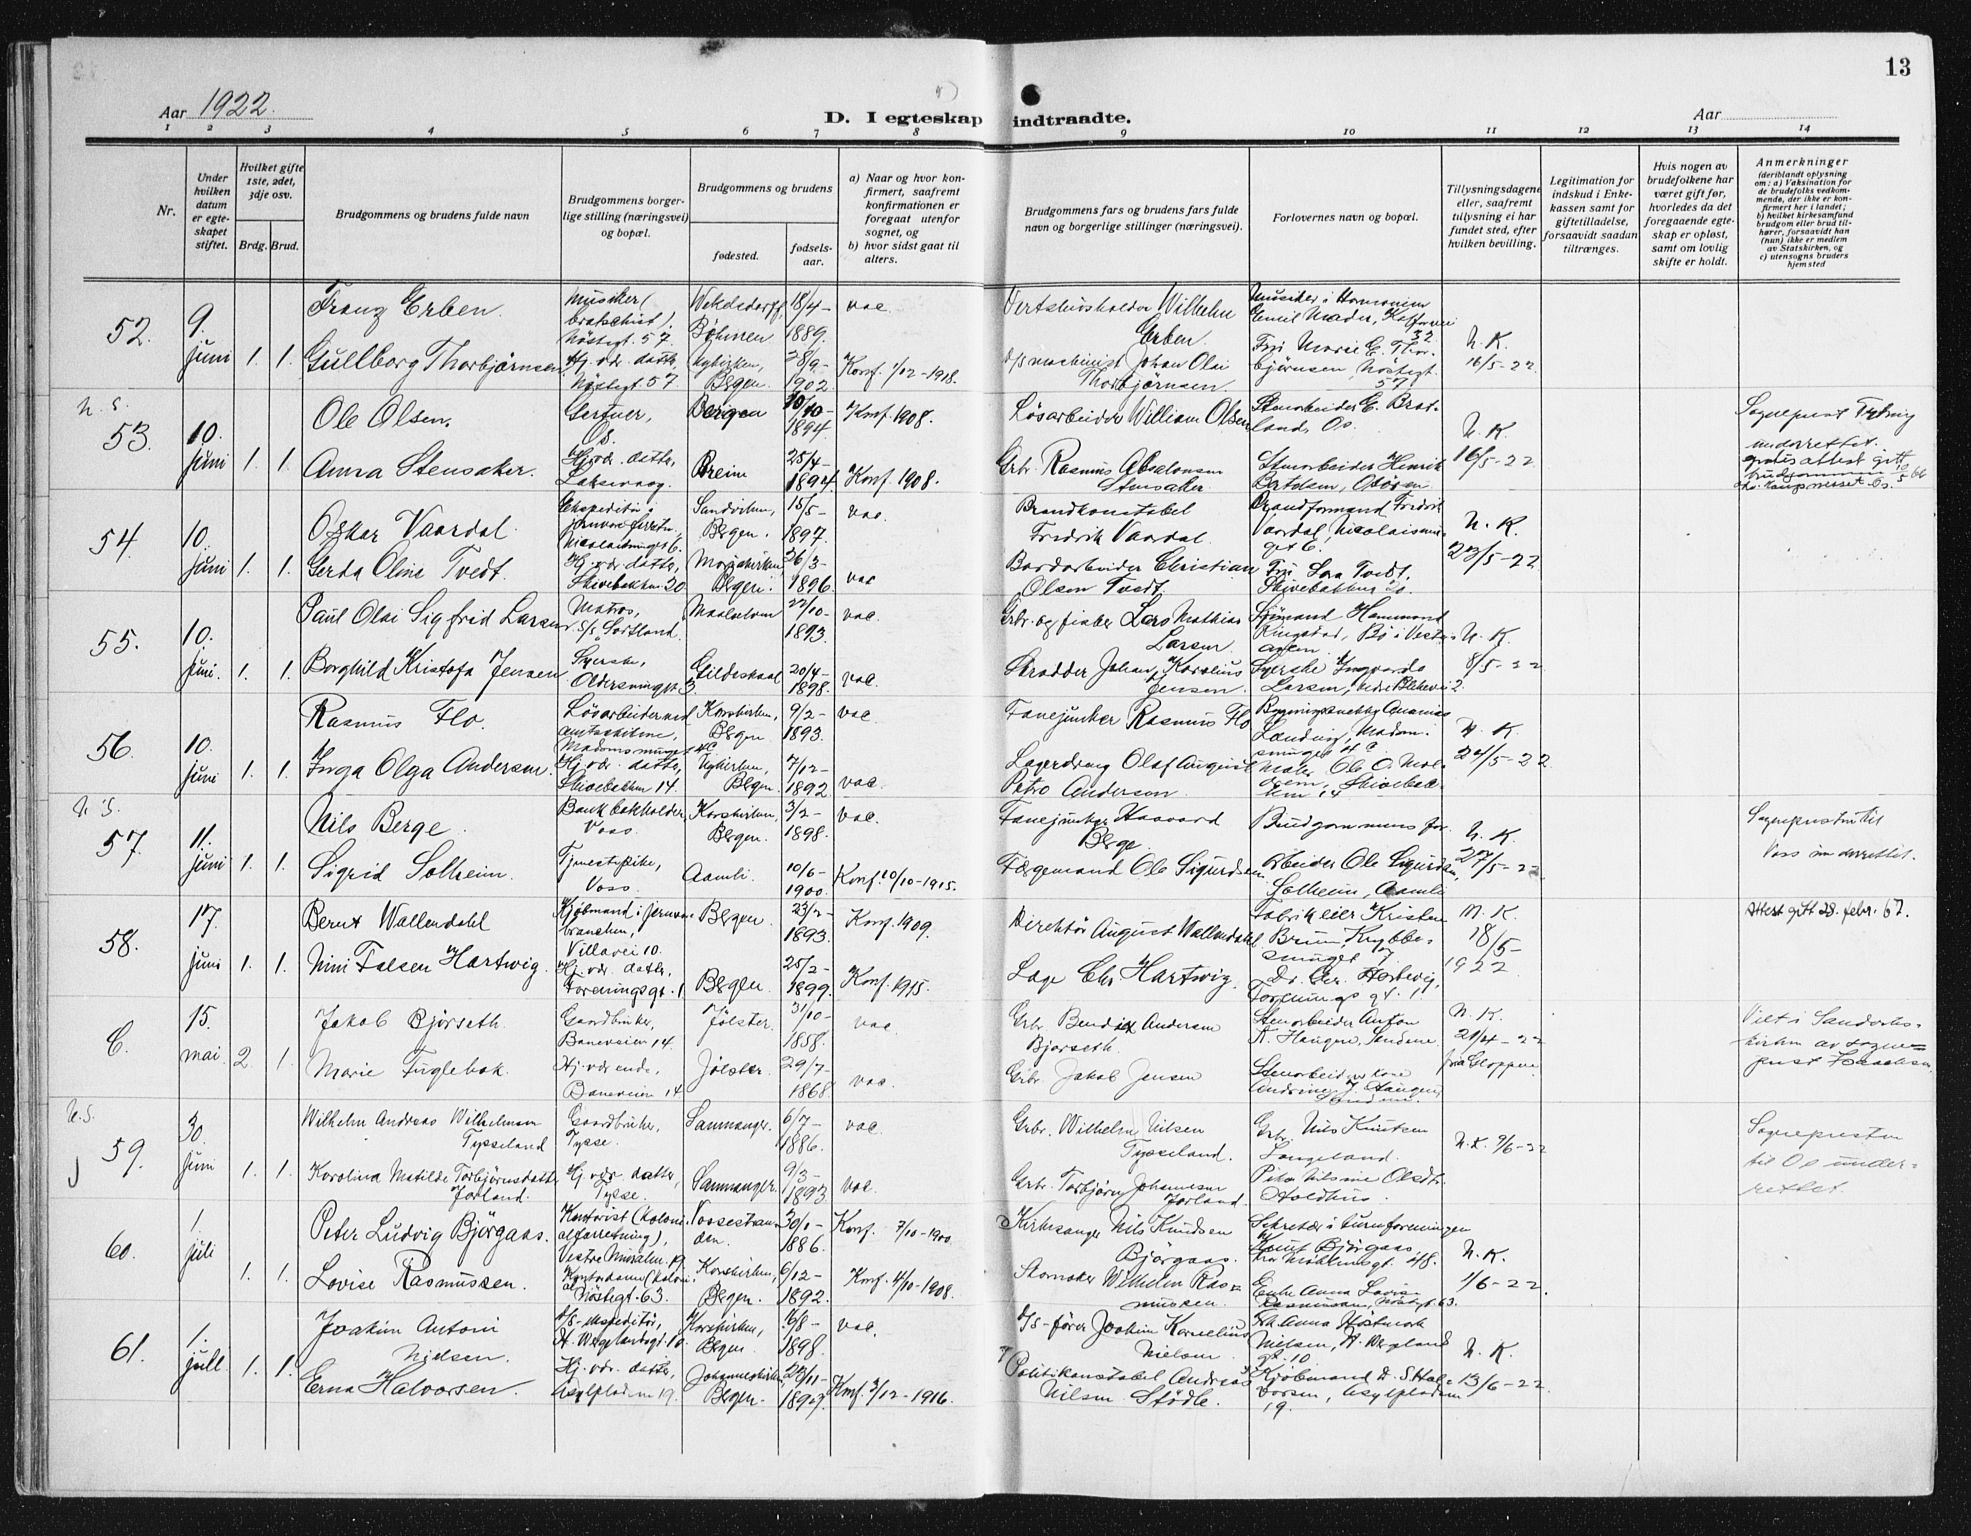 13
Aar 1922.
D. I egteskap indtraadte.
Aar
1 2 3 4 5 6 7 8 9 10 11 12 13 14
Nr.
Under hvilken datum er egteskapet stiftet.
Hvilket gifte 1ste, 2det, 3dje osv.
Brdg. Brud.
Brudgommens og brudens fulde navn
Brudgommens borgerlige stilling (næringsvei) og bopæl.
Brudgommens og brudens
fødested.
fødselsaar.
a) Naar og hvor konfirmert, saafremt konfirmationen er foregaat utenfor sognet, og
b) hvor sidst gaat til alters.
Brudgommens fars og brudens fars fulde navn og borgerlige stillinger (næringsvei).
Forlovernes navn og bopæl.
Tillysningsdagene eller, saafremt tillysning ei har fundet sted, efter hvilken bevilling.
Legitimation for indskud i Enkekassen samt for giftetilladelse, forsaavidt saadan tiltrænges.
Hvis nogen av brudefolkene har været gift før, hvorledes da det foregaaende egteskap er opløst, samt om lovlig skifte er holdt.
Anmerkninger (deriblandt oplysning om: a) Vaksination for de brudefolks vedkommende, der ikke er konfirmert her i landet; b) hvilket kirkesamfund brudgom eller brud tilhører, forsaavidt han (hun) ikke er medlem av Statskirken, og c) utensogns bruders hjemsted
52. 9. juni 1. 1.
Franz Erben. Musiker (bratschist). Nöstegt. 57. Wekelsdorff, Böhmen 18/4-1889. vac. Vertshusholder Wilhelm Erben. Musiker i Harmonien Emil Mader, 32 N. K.
Gullborg Thorbjörnsen Hj. vær. datter, Nöstegt 57. Nykirken, Bergen. 28/9-1902. Konf. 1/12-1918. d/s maschinist Johan Olai Thorbjörnsen. Frk Marie E. Thorbjörnsen, Nöstegt 57. 16/5-22
U. S.
53. 10. juni 1. 1.
Ole Olsen. Gertner, Os. Bergen 10/10-1894 Konf 1908. Lösarbeider William Olsen Stenarbeider E. Bratland, Os. N. K.
Anna Stensaker. Hj. vær. datter, Laksevaag. Breim 25/4-1894. Konf. 1908. Grbr. Rasmus Absalonsen Stensaker Stenarbeider Henrik Bertelsen, Osören 16/5-22
Sogneprest underrettet. gratis attest gitt brudgommen 10/5 66
54. 10. juni 1. 1.
Oskar Vaardal. Ekspeditör i jernvareforretn. Nicolaismuget 6. Sandviken, Bergen. 15/5-1897. vac. Brandkonstabel Fredrik Vaardal. Brandformand Fredrik Vardal, Nicolaismuget 6. N. K.
Gerda Oline Tvedt. Hj. vær. datter, Skivebakken 20 Mariakirken, Bergen. 26/3-1896. vac Bordarbeider Christian Olsen Tvedt. Frk Sara Tvedt, Skivebakken 20. 23/5-22
55. 10. juni. 1. 1.
Paul Olai Sigfrid Larsen Matros, S/S Sortland. Maalselven 22/10-1893. vac Grbr. og fisker Lars Mathias Larsen. Sjömand Hammond Ringstad, Bö i Vesteraalen N. K.
Borghild Kristofa Jensen Syerske, Oldersmuget 3 Gildeskaal 20/4-1898. vac. Skrædder Johan Kornelius Jensen. Syerske Ingvarda Larsen, nedre Blekevei 2. 8/5-22
56. 10. juni 1. 1.
Rasmus Flo. Lösarbeider Madamsmuget 4c Korskirken, Bergen 9/2-1893. vac. Fanejunker Rasmus Flo Bygningssnekker Landvig, Madamsmuget 4c N. K.
Inga Olga Andersen. Hj. vær. datter, Skivebakken 14. Nykirken, Bergen. 7/12-1892 vac. Lagerdreng Olaf August Petro Andersen Maler Ole O. Skivebakken 14 24/5-22
U. S.
57. 11. juni 1. 1.
Nils Berge. Bankbokholder, Voss. Korskirken, Bergen. 3/2-1898. vac. Fanejunker Haavard Berge Brudgommens far. N. K.
Sigrid Solheim. Tjenestepike, Voss. Aamli. 10/6-1900. Konf. 10/10-1915. Færgemand Ole Sigurdsen Arbeider Ole Sigurdsen Solheim, Aamli 27/5-22
Sognepresten til Voss underrettet.
58. 17. juni 1. 1.
Bernt Wallendahl Kjöbmand i jernbranchen, Villavei 10. Bergen. 23/2-1893. Konf. 1909. Direktör August Wallendahl Fabrikeier Kristen Bruun, Krybbesmuget 7 M. K.
Nini Falsen Hartwig. Hj. vær. datter, Foreningsgt. 1 Bergen. 25/2-1899. Konf. 1915. Læge Chr Hartwig. Dr. Chr. Hartwig, Foreningsgt. 1. 18/5-1922
Attest gitt 28. febr. 67.
C. 15. mai. 2. 1.
Jakob Bjorseth Gaardbruker, Baneveien 14. Jölster. 31/10-1858. vac. Grbr. Bendix Andersen Bjorseth. Stenarbeider Anton K. Haugen, Sandene. N. K.
Marie Fuglebak. Hj. værende, Baneveien 14 Jölster. 29/7-1868. vac. Grbr Jakob Jensen Stenarbeider kone Andrine J. Haugen, Sandene. 21/4-22 fra Gloppen
Viet i Sandvikskirken av sogneprest Isachsen
U. S.
59. 30. juni 1. 1.
Wilhelm Andreas Wilhelmsen Tysseland Gaardbruker, Tysse. Samnanger. 6/7-1886. vac. Grbr. Wilhelm Nilsen Tysseland. Grbr. Nils Knutsen Langeland. N. K. 9/6-22
Karolina Matilde Torbjörnsdatter Jorland. Hj. vær. datter, Tysse. Samnanger. 9/3-1893 vac. Grbr. Torbjörn Johannesen Jorland. Olsdtr. Holdhus.
Sognepresten til Os underrettet.
60. 1. juli 1. 1.
Peter Ludvig Björgaas. Kontorist (kolonialforretning), Vestre Muralm. 19. Vossestranden. 30/1-1886. Konf. 7/10-1900. Kirkesanger Nils Knudsen Björgaas. Sekretær i turnforeningen Knut Björgaas, 48. N. K.
Lovise Rasmussen. Kontordame (kolonial) Nöstegt. 63. Korskirken, Bergen. 6/12-1892. Konf. 4/10-1908. Wilhelm Rasmussen. Enke Anna Lovise Rasmussen, Nöstegt 63. 1/6-22
61. 1. juli. 1. 1.
Joakim Antoni Nielsen. d/s-ekspeditör, H. Wergelandsgt. 10 Korskirken, Bergen 16/8-1898. vac. D/S-förer Joakim Kornelius Nielsen Frk. Anna Höstmark Nielsen, H. Wergelandsgt. 10 N. K.
Erna Halvorsen. Hj. vær. datter, Asylpladsen 19. Johanneskirken, Bergen. Konf. 3/12-1916. Politikonstabel Andreas Nilsen Stödle. Kjöbmand D. S. Halvorsen, Asylpladsen 19. 13/6-22